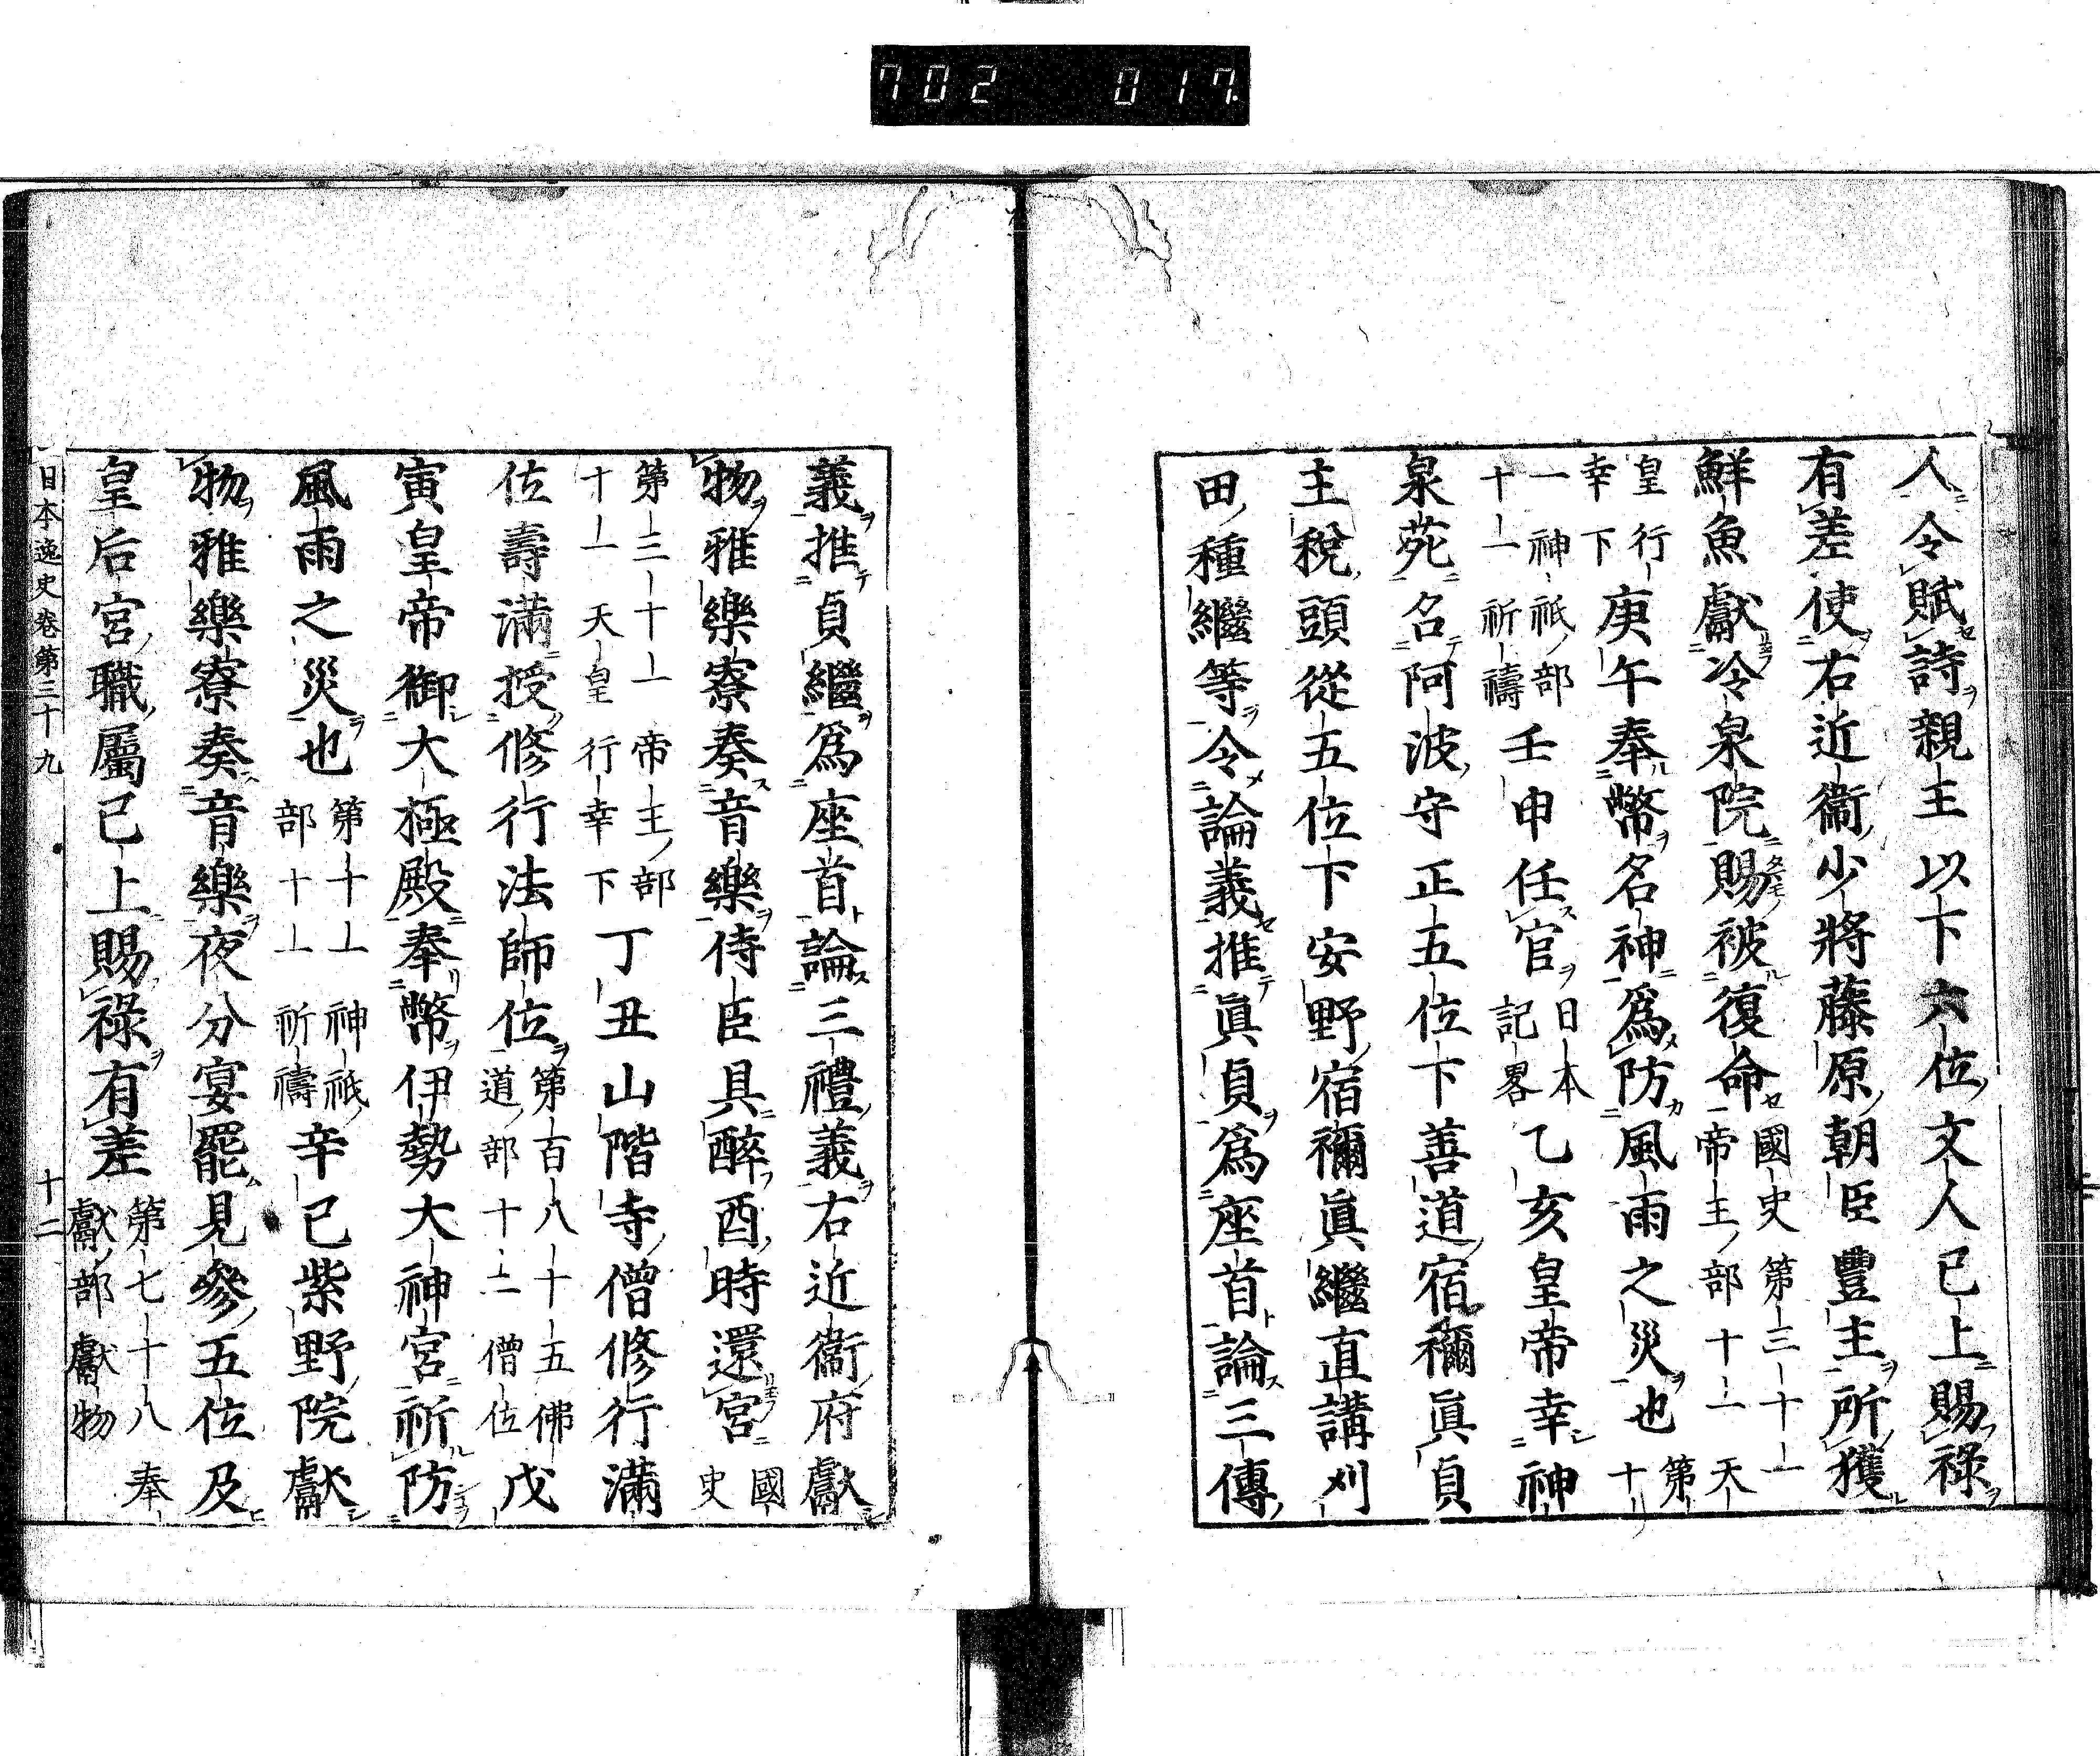 702 017
人令賦詩親王以下六位文人已上賜祿
有差使右近衞少將藤原朝臣豐主所獲
鮮魚獻冷泉院賜被復命國史第三十一帝主部十一天
皇行幸下庚午奉幣名神爲防風雨之災也第十
一神祇部十一祈禱壬申任官日本記畧乙亥皇帝幸神
泉苑召阿波守正五位下善道宿禰眞貞
主稅頭從五位下安野宿禰眞繼直講刈
田種繼等令論義推眞貞爲座首論三傳
義推貞繼爲座首論三禮義右近衞府獻
物雅樂寮奏音樂侍臣具醉酉時還宮國史
第三十一帝主部十一天皇行幸下丁丑山階寺僧修行滿
位壽滿授修行法師位第百八十五佛道部十二僧位戊
寅皇帝御大極殿奉幣伊勢大神宮祈防
風雨之災也第十一神祇部十一祈禱辛巳紫野院獻
物雅樂寮奏音樂夜分宴罷見參五位及
皇后宮職屬已上賜祿有差第七十八奉獻部獻物
日本逸史卷第三十九 十二